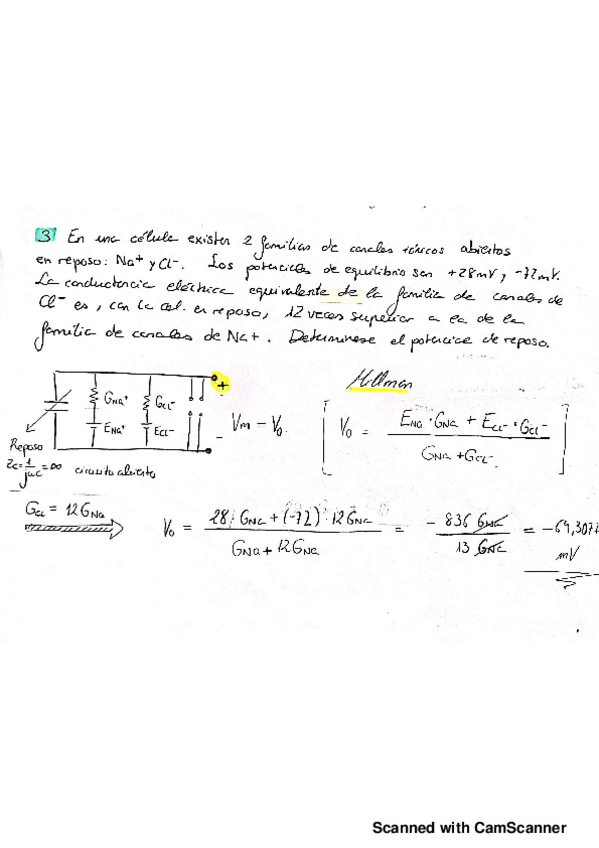 3 En una célula existen 2 familias de canales iónicos abiertos
en reposo: Na+ y Cl-. Los potenciales de equilibrio son +28mV y -72mV.
La conductancia eléctrica equivalente de la familia de canales de
Cl- es, con la cel. en reposo, 12 veces superior a la de la
familia de canales de Na+. Determínese el potencial de reposo.
+
Millman
GNa+ GCl-
ENa+ ECl-
- Vm - V0.
[ V0 = (ENa · GNa + ECl- · GCl-) / (GNa + GCl-) ]
Reposo
Zc = 1/jωc = ∞ circuito abierto
GCl = 12 GNa
V0 = (28 · GNa + (-72) · 12 GNa) / (GNa + 12 GNa) = - 836 GNa / 13 GNa = -64,307
mV
Scanned with CamScanner